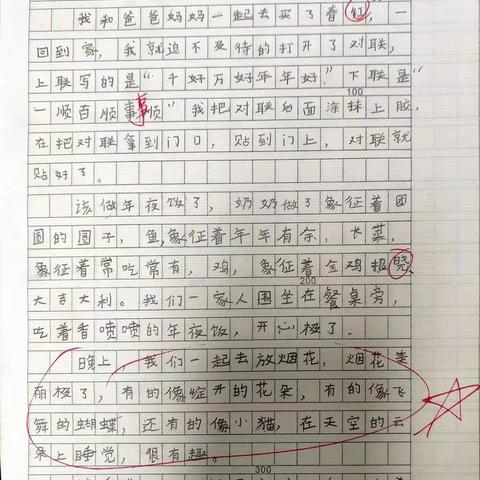 我和爸爸妈妈一起去买了春红，一
回到家，我就迫不及待的打开了对联，
上联写的是“千好万好年年好”，下联是“
100
一顺百顺事事顺”我把对联后面涂抹上胶，
在把对联拿到门口，贴到门上，对联就
贴好了。
该做年夜饭了，奶奶做了象征着团
圆的圆子，鱼，象征着年年有余，长菜，
象征着常吃常有，鸡，象征着金鸡报晓，
200
大吉大利。我们一家人围坐在餐桌旁，
吃着香喷喷的年夜饭，开心极了。
晚上，我们一起去放烟花，烟花美
丽极了，有的像绽开的花朵，有的像飞
舞的蝴蝶，还有的像小猫，在天空的云
朵上睡觉，很有趣。
300